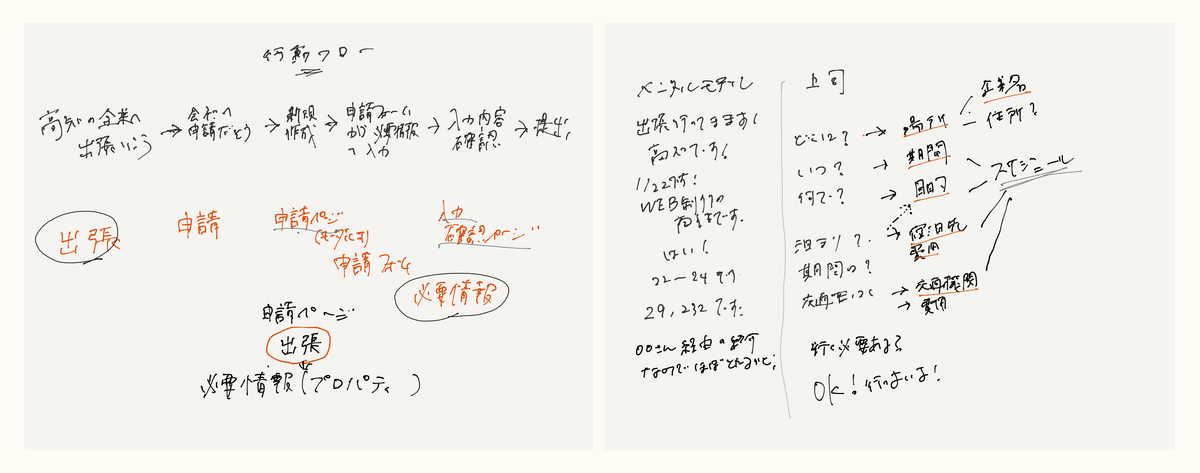 行動フロー
高知の企業へ
出張いこう
→
会社へ
申請だそう
→
新規
作成
→
申請フォーム
から必要情報
を入力
→
入力内容
確認
→
提出!
出張
申請
申請ページ
(モーダル
申請フォーム
入力
確認ページ
必要情報
申請ページ
出張
必要情報(プロパティ)
メンタルモデル
出張行ってきます!
高知です!
11/22です!
WEB制作の
です。
はい!
22-24です
29,232です。
○○さん経由の紹介
なのでほぼ
上司
どこに? → 場所
企業名
住所?
いつ? → 期間
何で? → 目的
スケジュール
泊まり? → 宿泊先
費用
期間の?
交通 → 交通機関
→ 費用
行く必要ある?
OK!行ってよいよ!